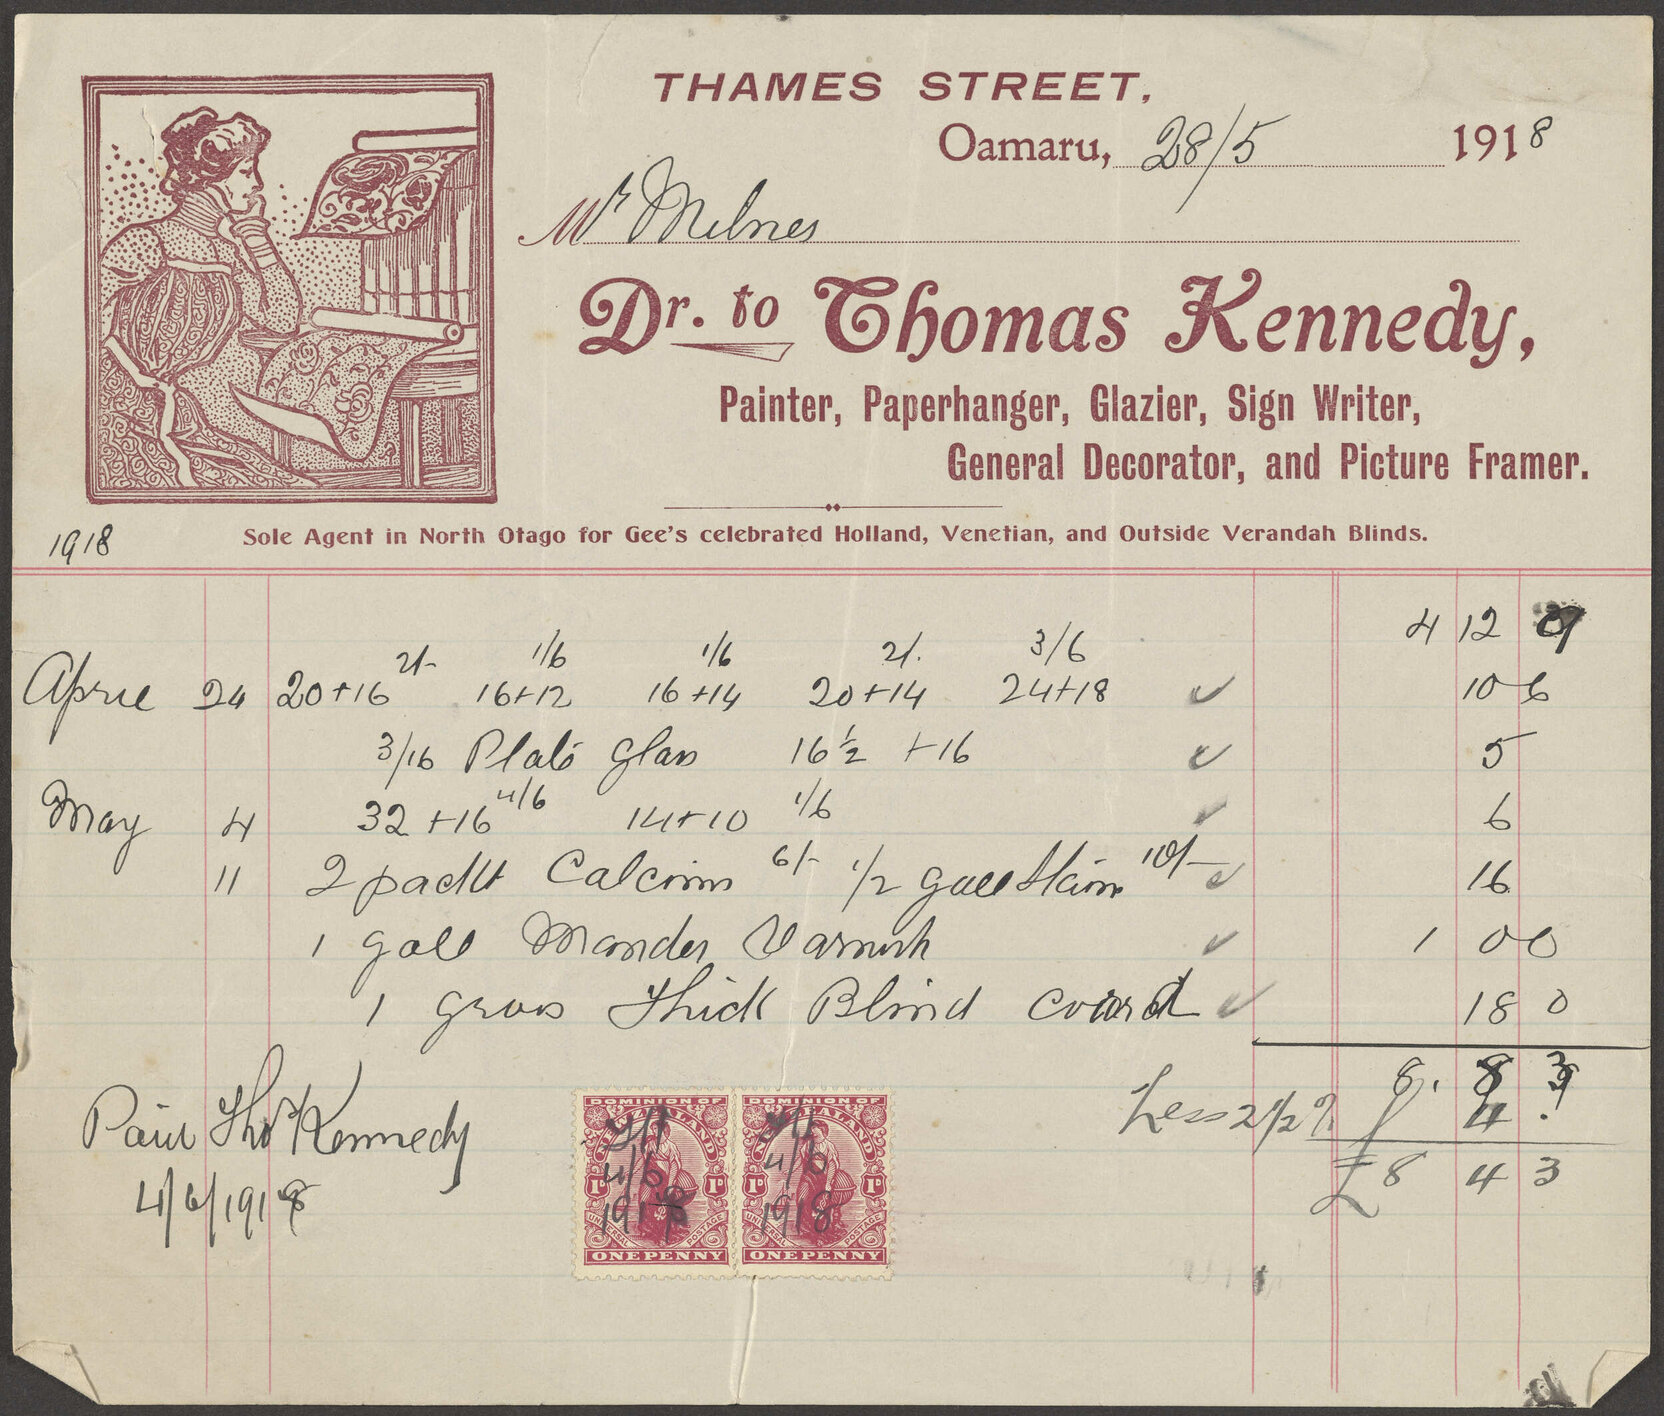 THAMES STREET.
Oamaru, 28/5 1918
Mr Milnes
Dr. to Thomas Kennedy,
Painter, Paperhanger, Glazier, Sign Writer,
General Decorator, and Picture Framer.
1918
Sole Agent in North Otago for Gee's celebrated Holland, Venetian, and Outside Verandah Blinds.
4 12 9
2/- 1/6 1/6 2/. 3/6
April 24 20+16 16+12 16+14 20+14 24+18 10 6
3/16 Plate Glass 16½ +16 5
May 4 32+16 4/6 14+10 1/6 6
11 2 packt Calcimo 6/- 1/2 gall Stain 10/- 16
1 gall Mander Varnish 1 0 0
1 gross thick Blind coard 18 0
8. 8 3
Less 2 1/2 % 4 .
£8 4 3
Paid Thos Kennedy
4/6/1918
DOMINION OF
NEW ZEALAND
4/6
1918
1D 1D
UNIVERSAL POSTAGE
ONE PENNY
DOMINION OF
NEW ZEALAND
4/6
1918
1D 1D
UNIVERSAL POSTAGE
ONE PENNY